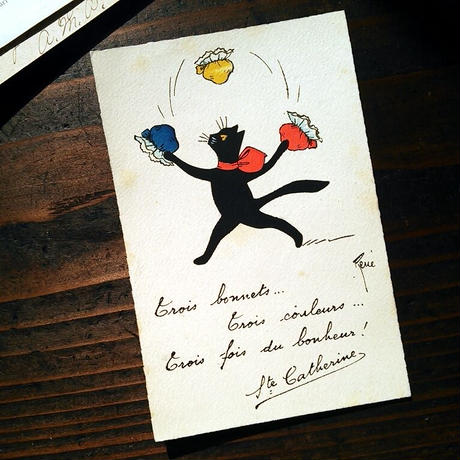 A. M. D.
René
Trois bonnets...
Trois couleurs...
Trois fois du bonheur!
Ste Catherine